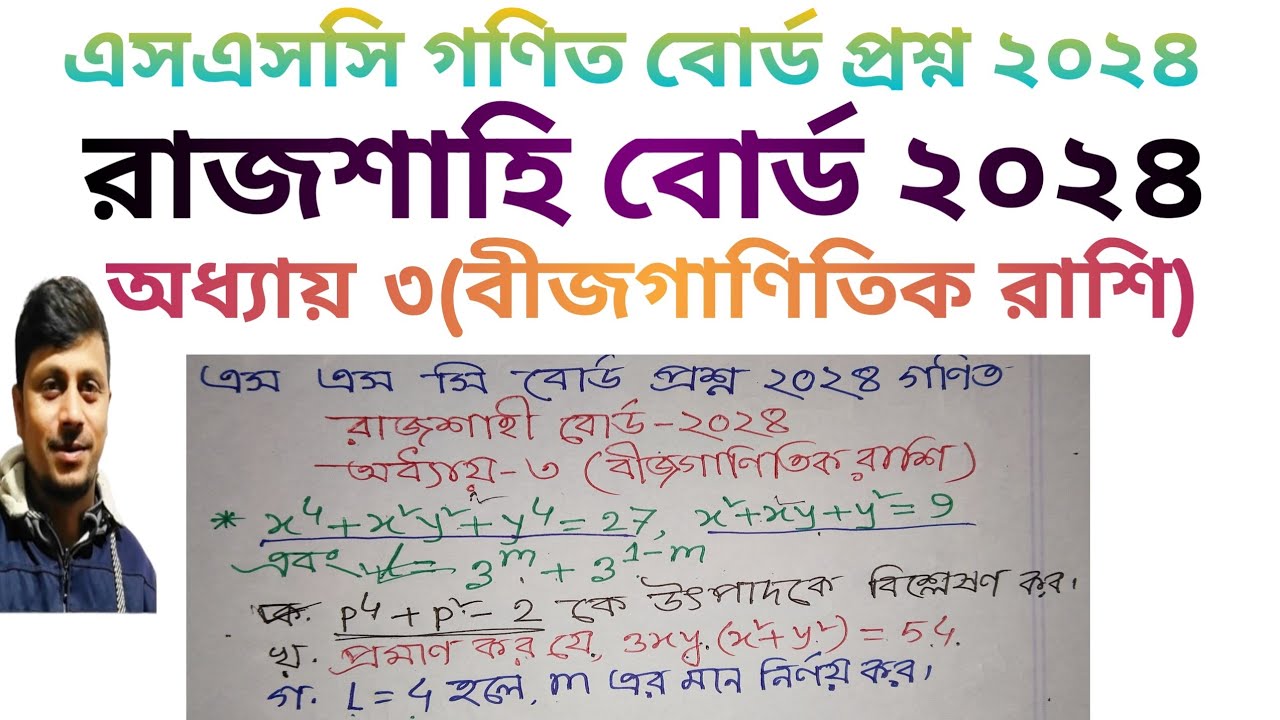 এসএসসি গণিত বোর্ড প্রশ্ন ২০২৪
রাজশাহি বোর্ড ২০২৪
অধ্যায় ৩(বীজগাণিতিক রাশি)
এস এস সি বোর্ড প্রশ্ন ২০২৪ গণিত
রাজশাহী বোর্ড-২০২৪
অধ্যায়-৩ (বীজগাণিতিক রাশি)
* x⁴+x²y²+y⁴=27, x²+xy+y²=9
এবং L= 3ᵐ + 3¹⁻ᵐ
ক. p⁴+p²-2 কে উৎপাদকে বিশ্লেষণ কর।
খ. প্রমাণ কর যে, 3xy.(x²+y²) = 54.
গ. L=4 হলে, m এর মান নির্ণয় কর।